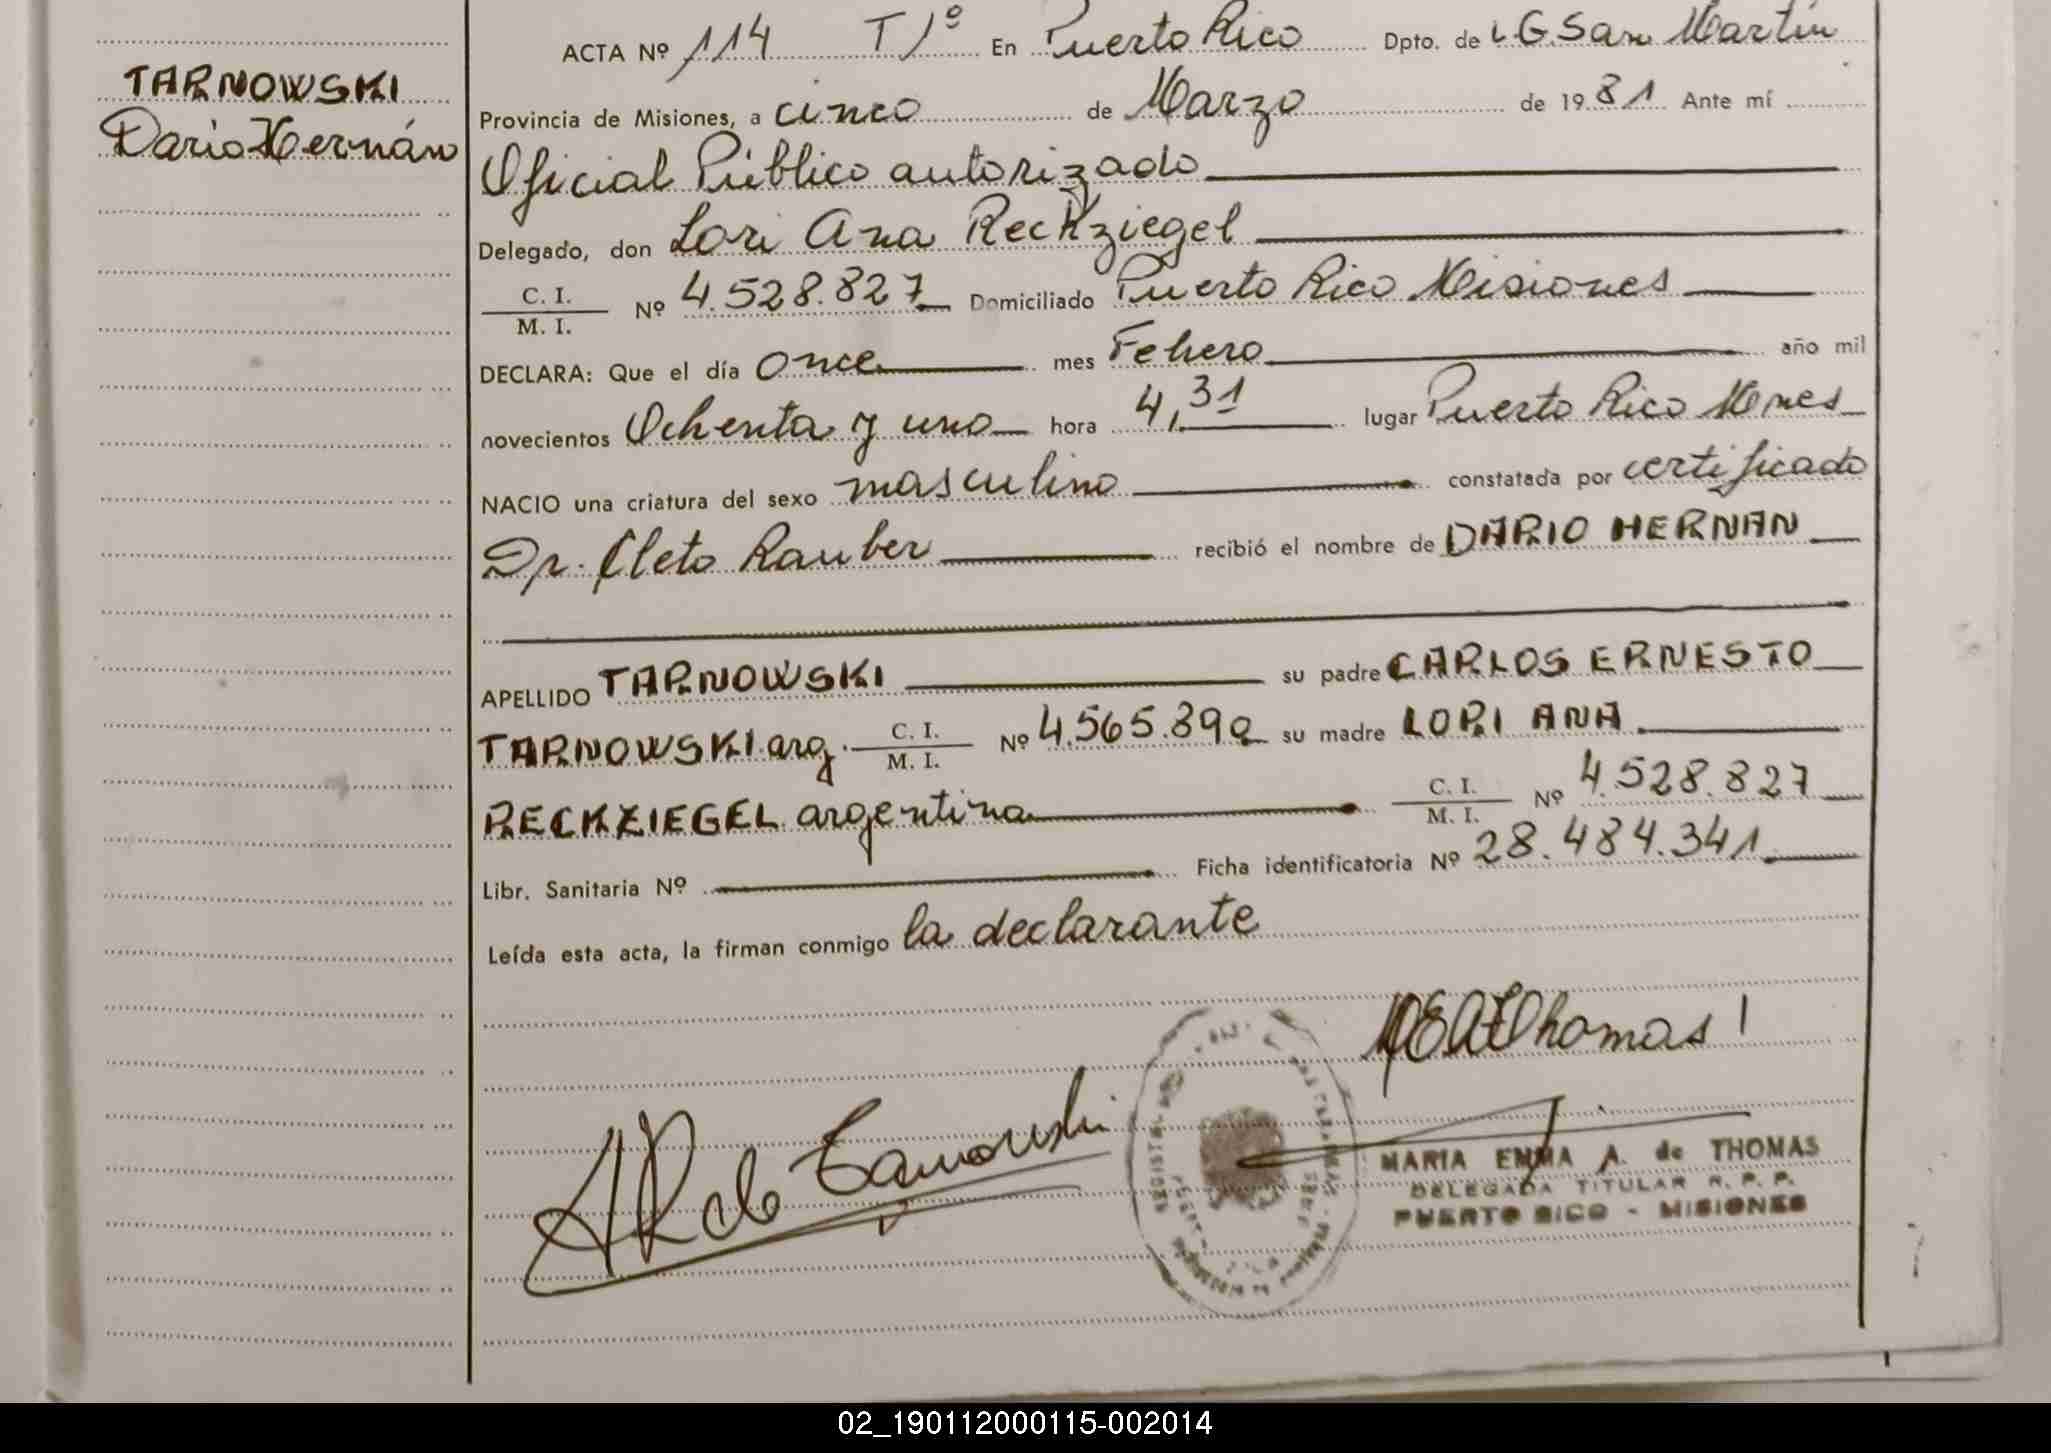 TARNOWSKI
Dario Hernán
ACTA Nº 114 T 1º En Puerto Rico Dpto. de L.G. San Martín
Provincia de Misiones, a cinco de Marzo de 1981 Ante mí
Oficial Público autorizado
Delegado, don Lori Ana Reckziegel
C. I.
M. I. Nº 4.528.827 Domiciliado Puerto Rico Misiones
DECLARA: Que el día once mes Febrero año mil
novecientos Ochenta y uno hora 4,31 lugar Puerto Rico Mnes
NACIO una criatura del sexo masculino constatada por certificado
Dr. Cleto Rauber recibió el nombre de DARIO HERNAN
APELLIDO TARNOWSKI su padre CARLOS ERNESTO
TARNOWSKI arg. C. I. M. I. Nº 4.565.390 su madre LORI ANA
RECKZIEGEL argentina C. I. M. I. Nº 4.528.827
Libr. Sanitaria Nº Ficha identificatoria Nº 28.484.341
Leída esta acta, la firman conmigo la declarante
MEAThomas
AR de Tarnowski
MARIA EMMA A. de THOMAS
DELEGADA TITULAR R. P. P.
PUERTO RICO - MISIONES
02_190112000115-002014